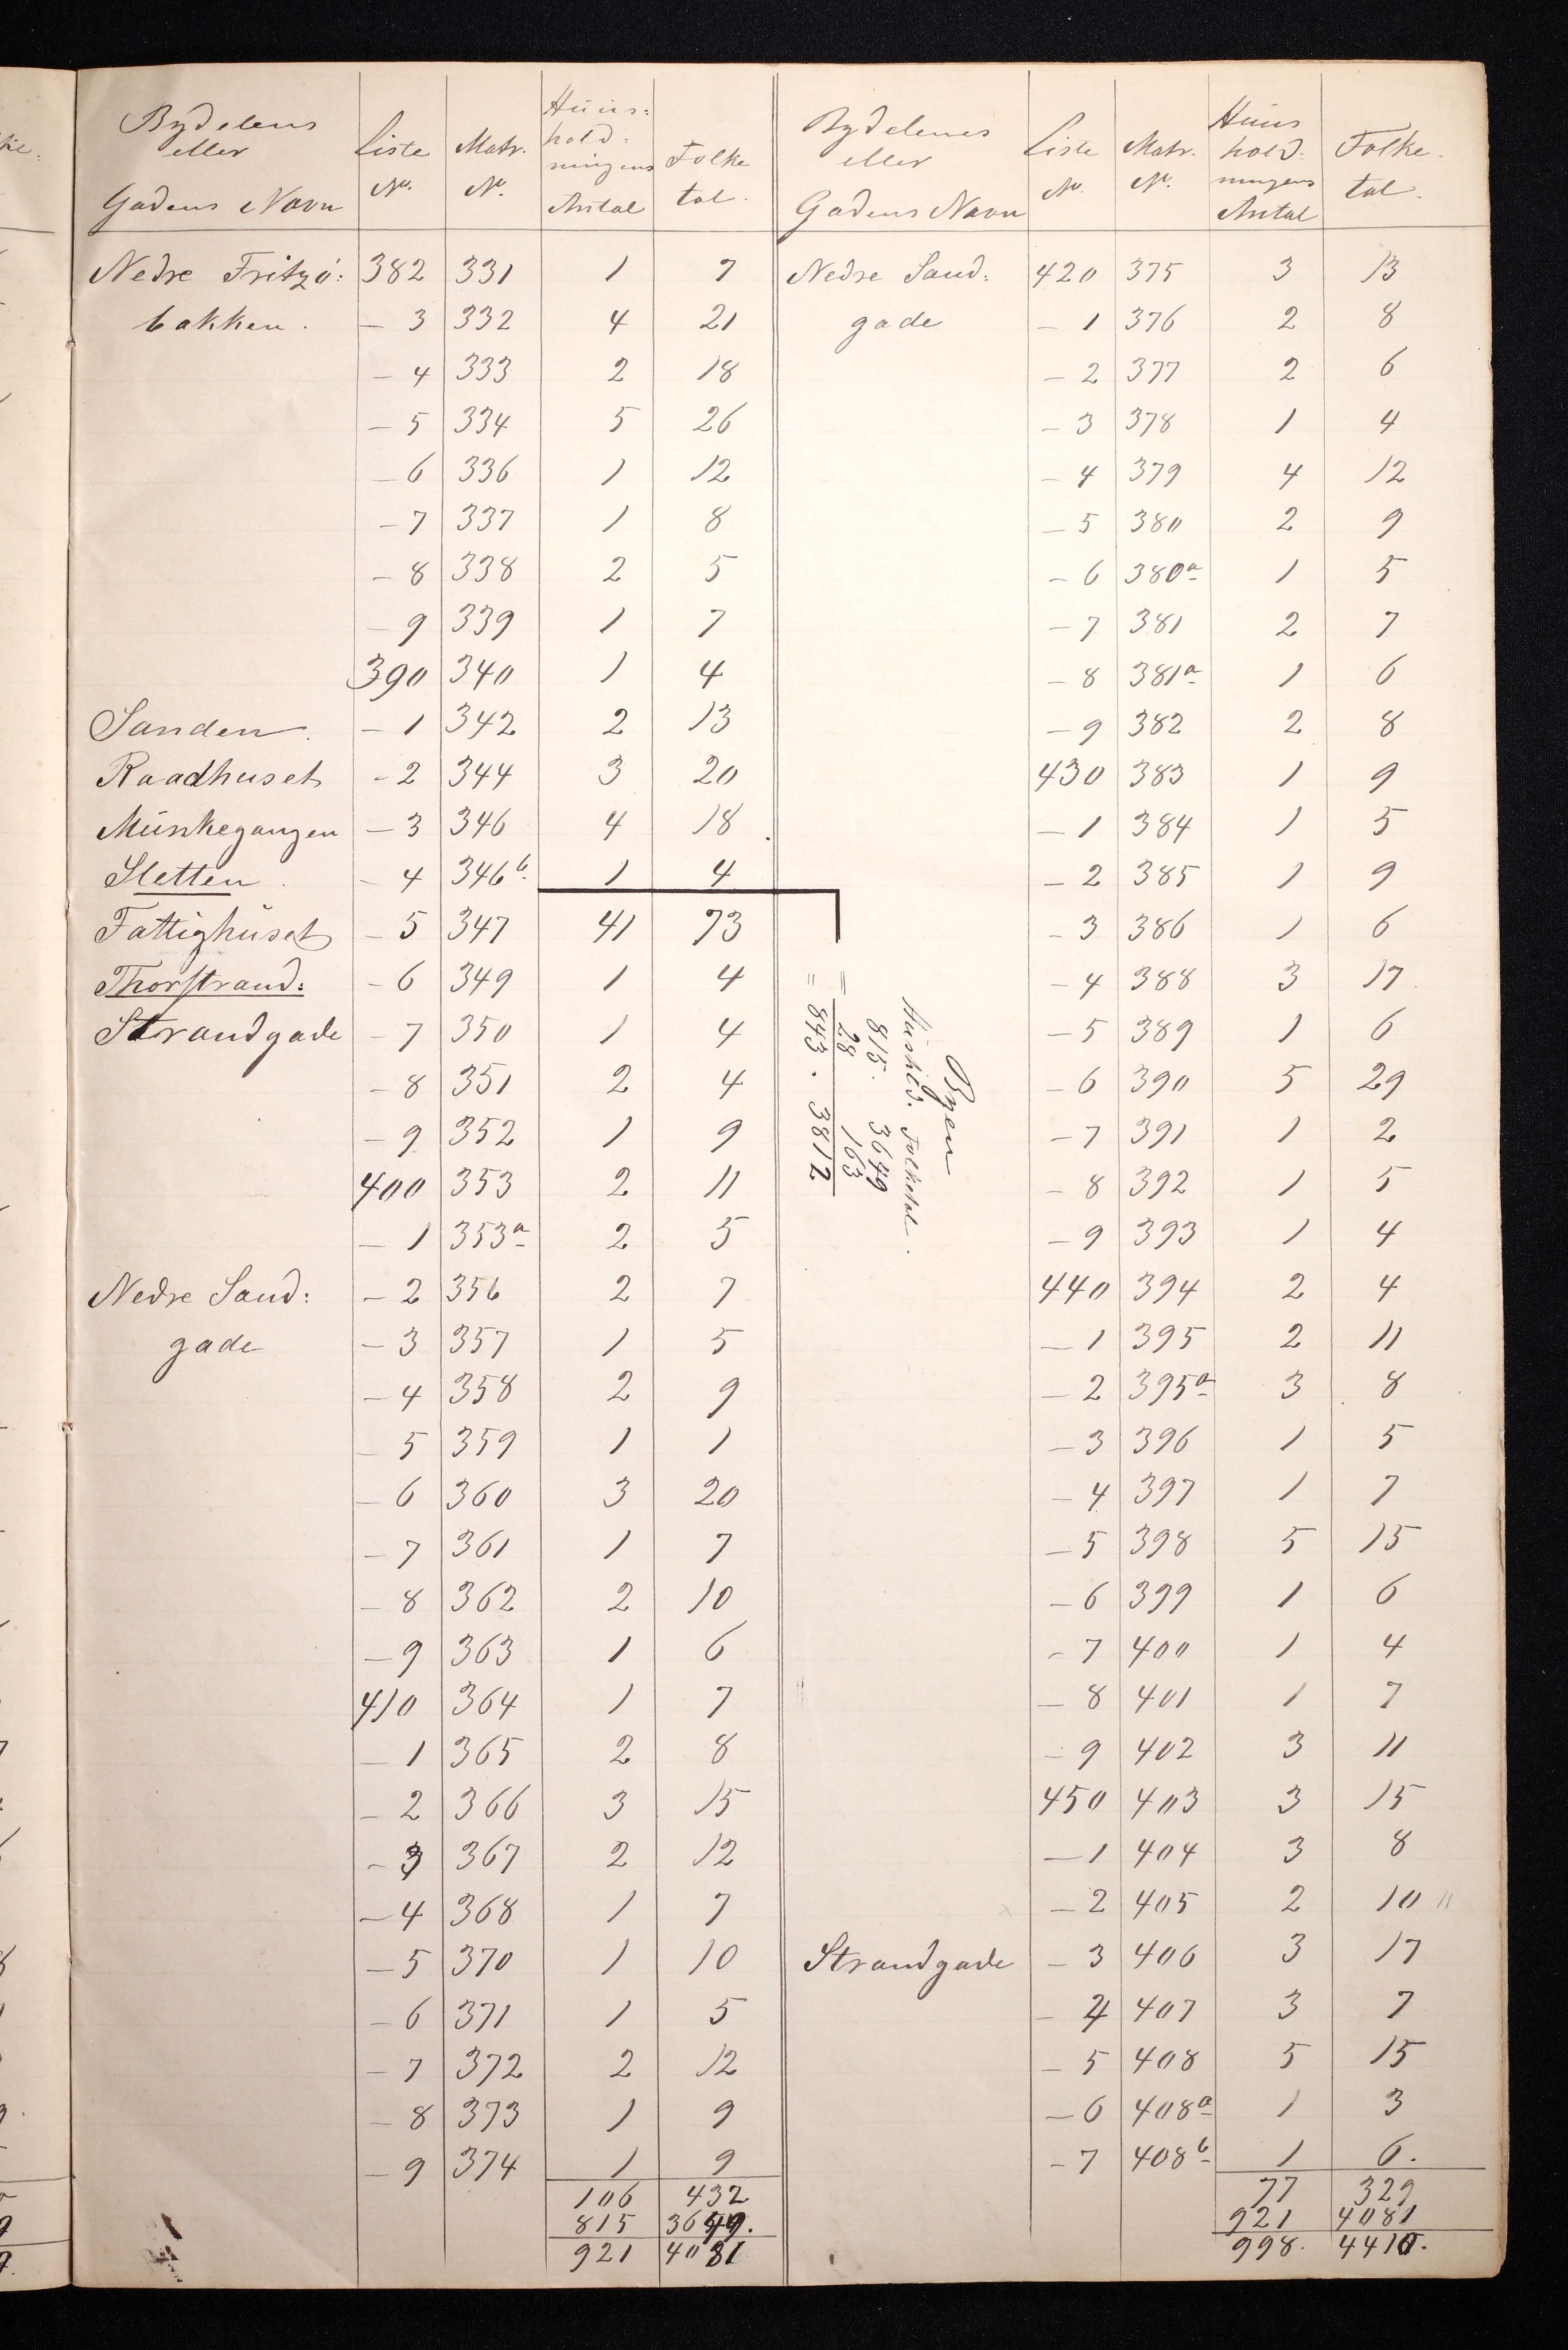 Bydelens eller Gadens Navn | Liste No. | Matr. No. | Huus: hold: ningens Antal | Folke tal.
Nedre Fritzö: | 382 | 331 | 1 | 7
bakken. | – 3 | 332 | 4 | 21
– 4 | 333 | 2 | 18
– 5 | 334 | 5 | 26
– 6 | 336 | 1 | 12
– 7 | 337 | 1 | 8
– 8 | 338 | 2 | 5
– 9 | 339 | 1 | 7
390 | 340 | 1 | 4
Sanden. | – 1 | 342 | 2 | 13
Raadhuset | – 2 | 344 | 3 | 20
Munkegangen | – 3 | 346 | 4 | 18
Sletten. | – 4 | 346b | 1 | 4
Fattighuset | – 5 | 347 | 41 | 73
Thorstrand: | – 6 | 349 | 1 | 4
Strandgade | – 7 | 350 | 1 | 4
– 8 | 351 | 2 | 4
– 9 | 352 | 1 | 9
400 | 353 | 2 | 11
– 1 | 353a | 2 | 5
Nedre Sand: | – 2 | 356 | 2 | 7
gade | – 3 | 357 | 1 | 5
– 4 | 358 | 2 | 9
– 5 | 359 | 1 | 1
– 6 | 360 | 3 | 20
– 7 | 361 | 1 | 7
– 8 | 362 | 2 | 10
– 9 | 363 | 1 | 6
410 | 364 | 1 | 7
– 1 | 365 | 2 | 8
– 2 | 366 | 3 | 15
– 3 | 367 | 2 | 12
– 4 | 368 | 1 | 7
– 5 | 370 | 1 | 10
– 6 | 371 | 1 | 5
– 7 | 372 | 2 | 12
– 8 | 373 | 1 | 9
– 9 | 374 | 1 | 9
106 | 432
815 | 3649.
921 | 4081
Byen
Hushld. Folketal.
815. 3649
= 28 163
= 843. 3812
Bydelenes eller Gadens Navn | Liste No. | Matr. No. | Huus hold: ningens Antal | Folke. tal.
Nedre Sand: | 420 | 375 | 3 | 13
gade | – 1 | 376 | 2 | 8
– 2 | 377 | 2 | 6
– 3 | 378 | 1 | 4
– 4 | 379 | 4 | 12
– 5 | 380 | 2 | 9
– 6 | 380a | 1 | 5
– 7 | 381 | 2 | 7
– 8 | 381a | 1 | 6
– 9 | 382 | 2 | 8
430 | 383 | 1 | 9
– 1 | 384 | 1 | 5
– 2 | 385 | 1 | 9
– 3 | 386 | 1 | 6
– 4 | 388 | 3 | 17
– 5 | 389 | 1 | 6
– 6 | 390 | 5 | 29
– 7 | 391 | 1 | 2
– 8 | 392 | 1 | 5
– 9 | 393 | 1 | 4
440 | 394 | 2 | 4
– 1 | 395 | 2 | 11
– 2 | 395a | 3 | 8
– 3 | 396 | 1 | 5
– 4 | 397 | 1 | 7
– 5 | 398 | 5 | 15
– 6 | 399 | 1 | 6
– 7 | 400 | 1 | 4
– 8 | 401 | 1 | 7
– 9 | 402 | 3 | 11
450 | 403 | 3 | 15
– 1 | 404 | 3 | 8
– 2 | 405 | 2 | 10 "
Strandgade | – 3 | 406 | 3 | 17
– 4 | 407 | 3 | 7
– 5 | 408 | 5 | 15
– 6 | 408a | 1 | 3
– 7 | 408b | 1 | 6.
77 | 329
921 | 4081
998. | 4410.